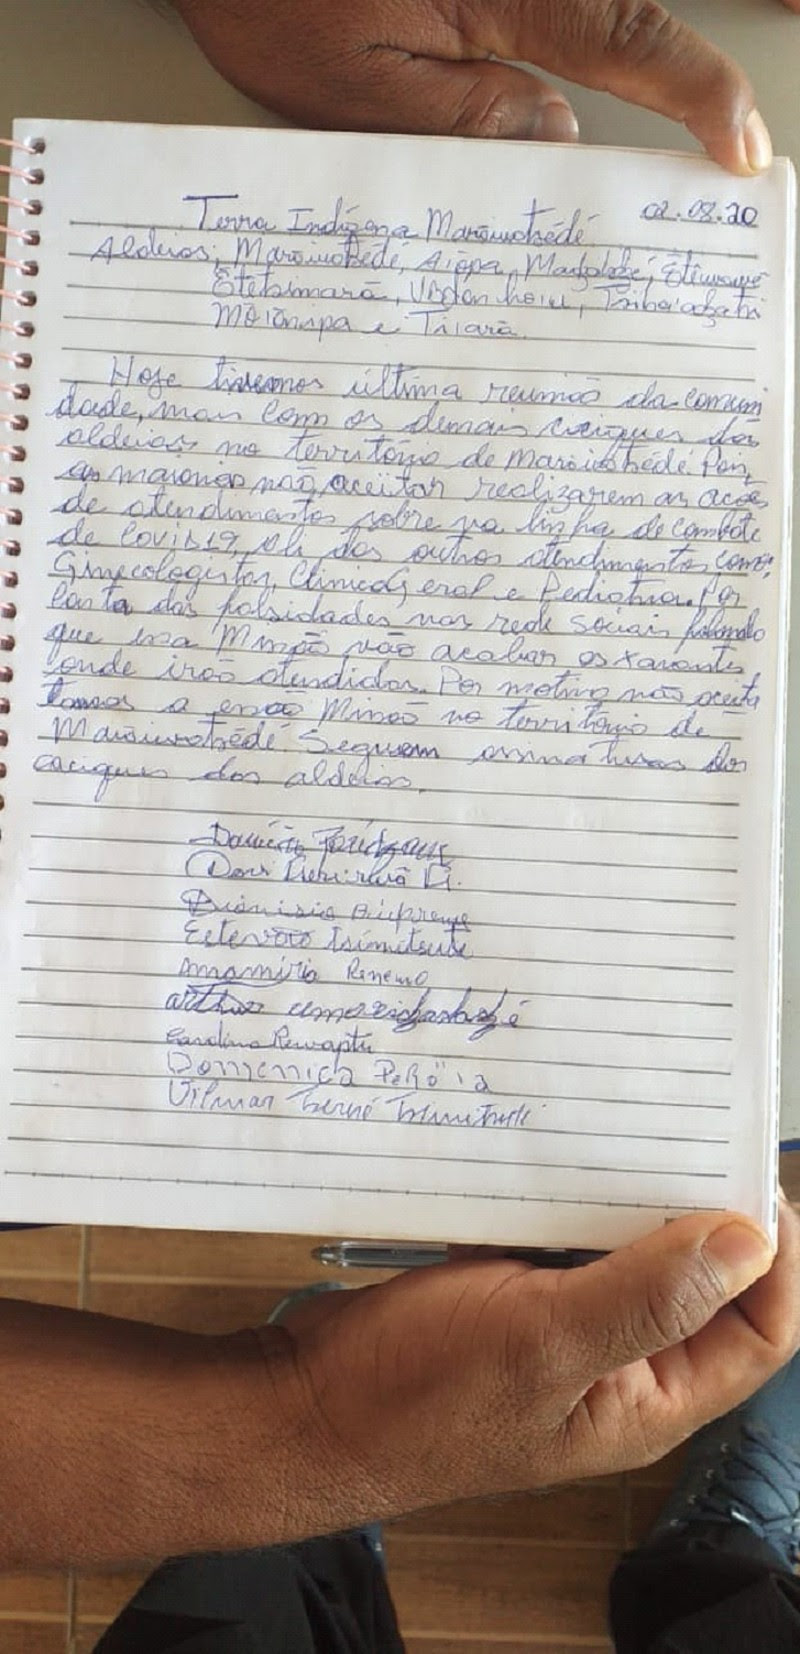 02.08.20
Terra Indígena Marãiwatsédé
Aldeias; Marãiwatsédé, Aiopa, Madzabzé, Etewawe
Etetsimarã,
Mõiõnipa e Tiiarã.
Hoje tivemos última reunião da comuni
dade, mais com os demais caciques das
aldeias no território de Marãiwatsédé. Pois,
as maiorias não aceitar realizarem as ações
de atendimentos sobre na linha de combate
de Covid19, dos outros atendimentos como:
Ginecologistas, Clinico Geral e Pediatria. Por
conta das falsidades nas rede sociais falando
que essa Missão vão acabar os xavantes
onde irão atendidos. Por motivo não aceita
tamos a essão Missão no território de
Marãiwatsédé. Seguem assinaturas dos
caciques das aldeias.
Damião
Dionisio
Estevão Tsimitsute
arthur
Carolina Rewaptu
Domenica
Vilmar